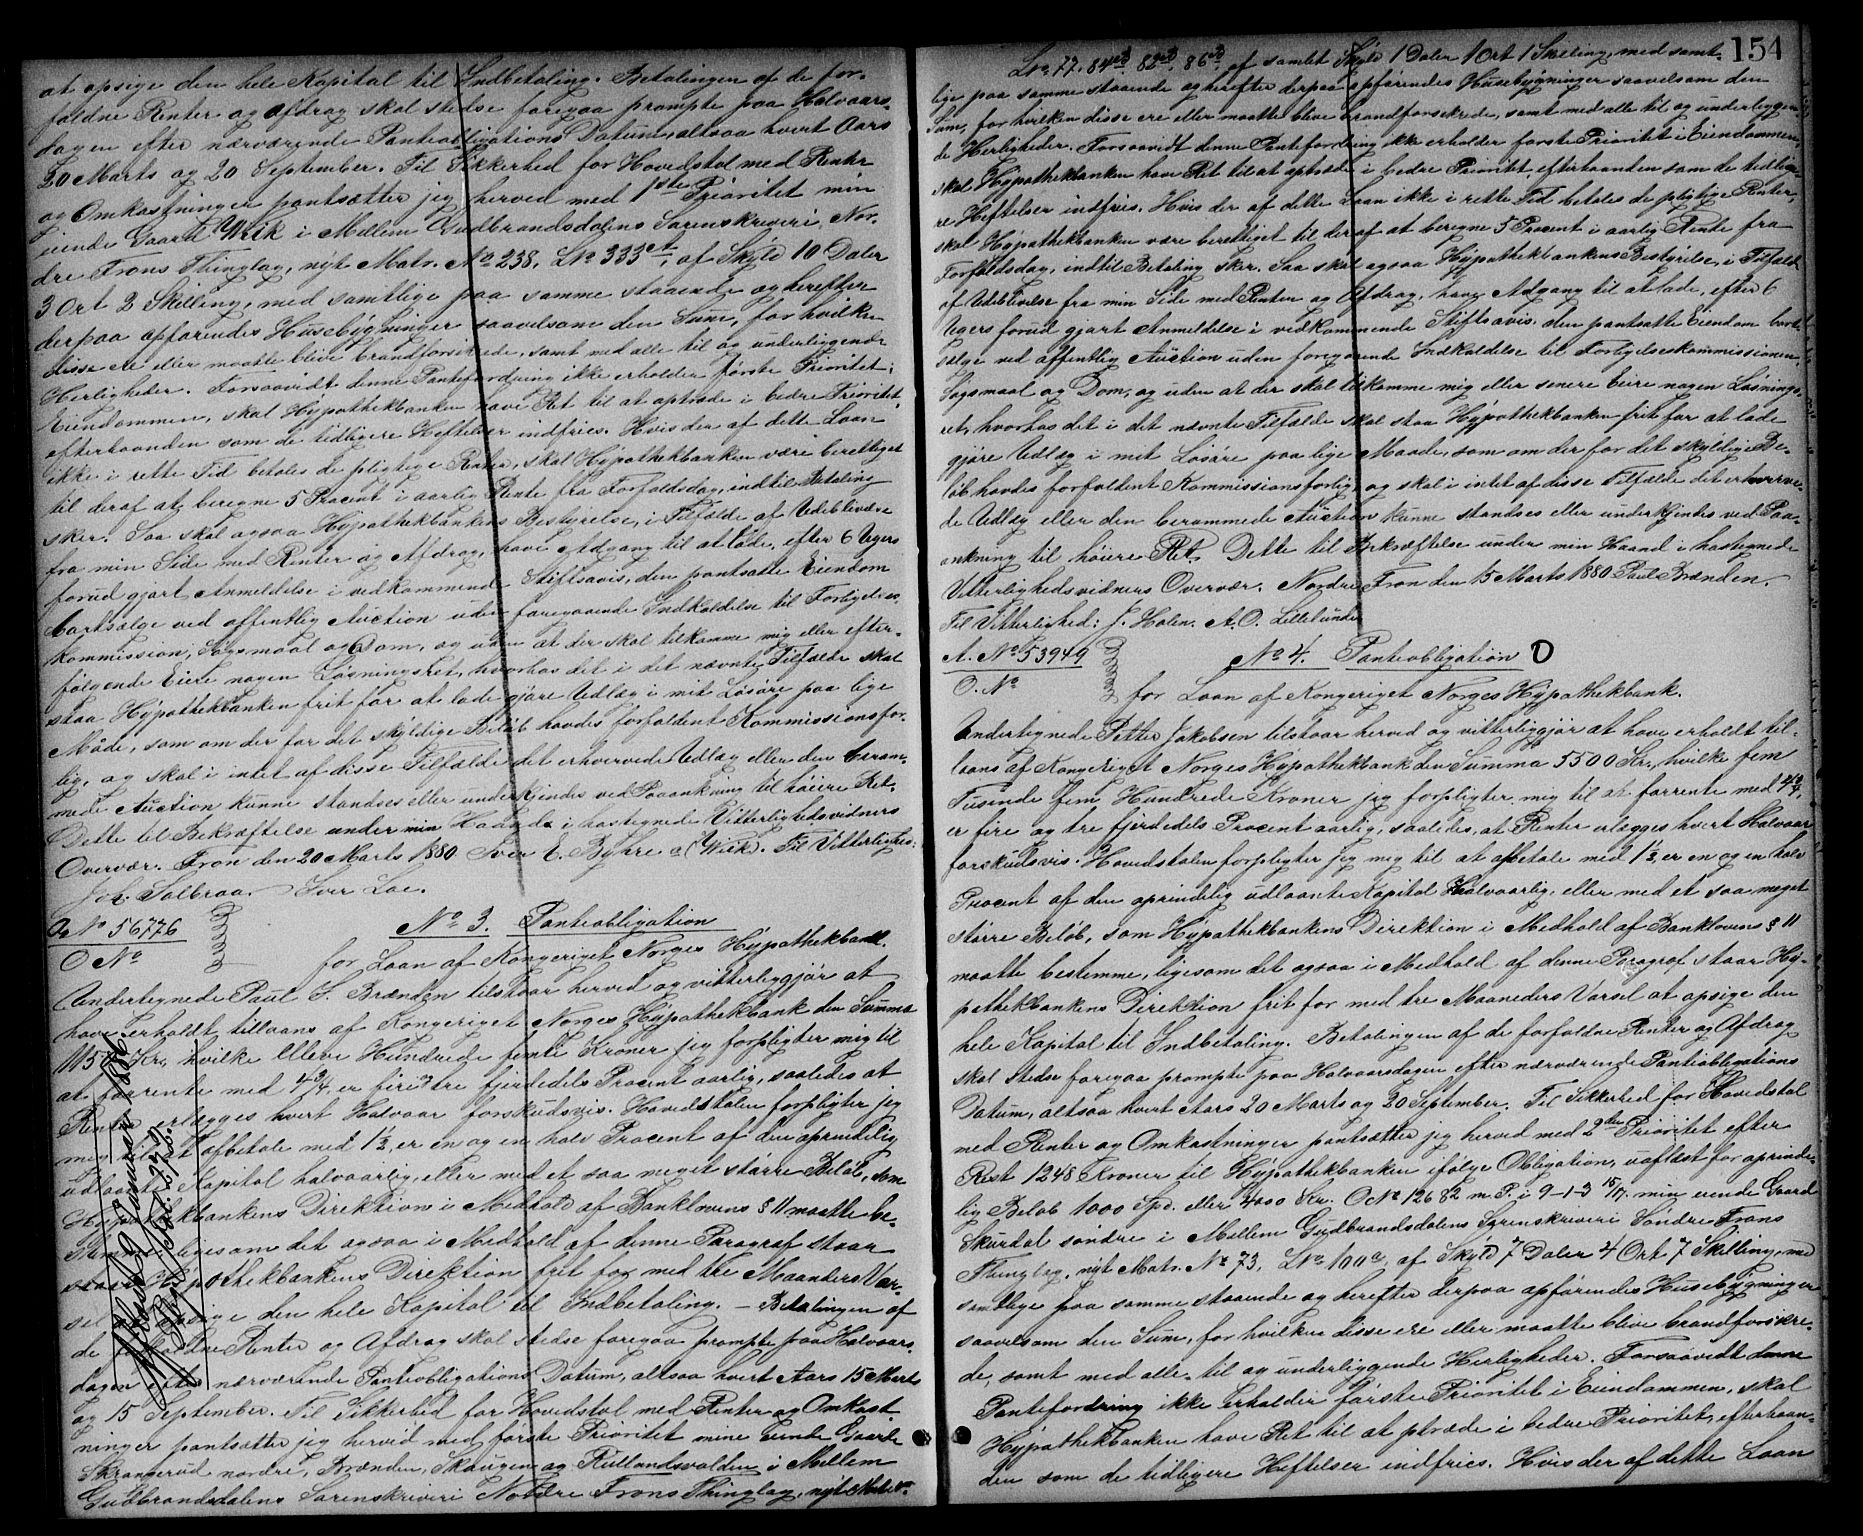 at opsige den hele Kapital til Indbetaling. Betalingen af de for-
faldne Renter og Afdrag skal stedse foregaa prompte paa Halvaars-
dagen efter nærværende Pantiobligations Datum, altsaa hvert Aars
20 Marts og 20 September. Til Sikkerhed for Hovedstol med Renter
og Omkostninger pantsætter jeg herved med 1ste Prioritet min
eiende Gaard Wiik i Mellem Gudbrandsdalens Sorenskriveri, Nor-
dre Frons Thinglag, nyt Matr. No 238, LNo 333a, af Skyld 10 Daler
3 Ort 2 Skilling, med samtlige paa samme staaende og herefter
derpaa opførendes Husebygninger saavelsom den Sum, for hvilken
disse ere eller maatte blive brandforsikrede, samt med alle til og underliggende
Herligheder. Forsaavidt denne Pantefordring ikke erholder første Prioritet i
Eiendommen, skal Hypothekbanken have Ret til at optræde i bedre Prioritet,
efterhaanden som de tidligere Heftelser indfries. Hvis der af dette Laan
ikke i rette Tid betales de pligtige Renter, skal Hypothekbanken være berettiget
til deraf at beregne 5 Procent i aarlig Rente fra Forfaldsdag, indtil Betaling
sker. Saa skal ogsaa Hypothekbankens Bestyrelse, i Tilfælde af Udeblivelse
fra min Side med Renter og Afdrag, have Adgang til at lade, efter 6 Ugers
forud gjort Anmeldelse i vedkommende Stiftsavis, den pantsatte Eiendom
bortsælge ved offentlig Auction uden foregaaende Indkaldelse til Forligelses-
kommission, Søgsmaal og Dom, og uden at der skal tilkomme mig eller efter-
følgende Eiere nogen Løsningsret, hvorhos det i det nævnte Tilfælde skal
staa Hypothekbanken frit for at lade gjøre Udlæg i mit Løsøre paa lige
Maade, som om der for det skyldige Beløb havdes forfaldent Kommissionsfor-
lig, og skal i intet af disse Tilfælde det erhvervede Udlæg eller den beram-
mede Auction kunne standses eller underkjendes ved Paaankning til høiere Ret.
Dette til Bekræftelse under min Haand i hostegnede Vitterlighedsvidners
Overvær. Fron den 20 Marts 1880 Iver E. Byhre a (Wiik). Til Vitterlighed:
Joh. Solbraa. Iver Loe.
A No 56776
O No
No 3. Pantiobligation
for Laan af Kongeriget Norges Hypothekbank.
Undertegnede Paul S. Brænden tilstaar herved og vitterliggjør at
have erholdt tillaans af Kongeriget Norges Hypothekbank den Summa
1150 Kr., hvilke Elleve Hundrede femti Kroner jeg forpligter mig til
at forrente med 4 3/4 er fire og tre fjerdedels Procent aarlig, saaledes at
Renter erlægges hvert Halvaar forskudsvis. Hovedstolen forpligter jeg
mig til at afbetale med 1 1/2, er en og en halv Procent af den oprindelig
udlaante Kapital halvaarlig, eller med et saa meget større Beløb, som
Hypothekbankens Direktion i Medhold af Banklovens § 11 maatte be-
stemme, ligesom det ogsaa i Medhold af denne Paragraf staar
Hypothekbankens Direktion frit for med tre Maaneders Var-
sel at opsige den hele Kapital til Indbetaling. - Betalingen af
de forfaldne Renter og Afdrag skal stedse foregaa prompte paa Halvaars-
dagen efter nærværende Pantiobligations Datum, altsaa hvert Aars 15 Marts
og 15 September. Til Sikkerhed for Hovedstol med Renter og Omkost-
ninger pantsætter jeg herved med første Prioritet mine eiende Gaarde
Skrangerud nordre, Brænden, Skaugen og Rullandsvolden i Mellem
Gudbrandsdalens Sorenskriveri Nordre Frons Thinglag, nyt Matr.
154
LNo 77, 84, 82, 86, af samlet Skyld 1 Daler 1 Ort 1 Skilling, med samt-
lige paa samme staaende og herefter derpaa opførendes Husebygninger saavelsom den
Sum, for hvilken disse ere eller maatte blive brandforsikrede, samt med alle til og underliggen-
de Herligheder. Forsaavidt denne Pantefordring ikke erholder første Prioritet i Eiendommen,
skal Hypothekbanken have Ret til at optræde i bedre Prioritet, efterhaanden som de tidlige-
re Heftelser indfries. Hvis der af dette Laan ikke i rette Tid betales de pligtige Renter,
skal Hypothekbanken være berettiget til deraf at beregne 5 Procent i aarlig Rente fra
Forfaldsdag, indtil Betaling sker. Saa skal ogsaa Hypothekbankens Bestyrelse, i Tilfælde
af Udeblivelse fra min Side med Renter og Afdrag, have Adgang til at lade, efter 6
Ugers forud gjort Anmeldelse i vedkommende Stiftsavis, den pantsatte Eiendom bort-
sælge ved offentlig Auction uden foregaaende Indkaldelse til Forligelseskommissionen,
Søgsmaal og Dom, og uden at der skal tilkomme mig eller senere Eiere nogen Løsnings-
ret, hvorhos det i det nævnte Tilfælde skal staa Hypothekbanken frit for at lade
gjøre Udlæg i mit Løsøre paa lige Maade, som om der for det skyldige Be-
løb havdes forfaldent Kommissionsforlig, og skal i intet af disse Tilfælde det erhverve-
de Udlæg eller den berammede Auction kunne standses eller underkjendes ved Paa-
ankning til høiere Ret. Dette til Bekræftelse under min Haand i hostegnede
Vitterlighedsvidners Overvær. Nordre Fron den 15 Marts 1880 Paul Brænden.
Til Vitterlighed: J. Holen. A. O. Lillelunde
A. No 53949
O. No
No 4. Pantiobligation
for Laan af Kongeriget Norges Hypothekbank.
Undertegnede Petter Jakobsen tilstaar herved og vitterliggjør at have erholdt til-
laans af Kongeriget Norges Hypothekbank den Summa 5500 Kr., hvilke fem
Tusinde fem Hundrede Kroner jeg forpligter mig til at forrente med 4 3/4,
er fire og tre fjerdedels Procent aarlig, saaledes, at Renter erlægges hvert Halvaar
forskudsvis. Hovedstolen forpligter jeg mig til at afbetale med 1 1/2 er en og en halv
Procent af den oprindelig udlaante Kapital Halvaarlig, eller med et saa meget
større Beløb, som Hypothekbankens Direktion i Medhold af Banklovens § 11
maatte bestemme, ligesom det ogsaa i Medhold af denne Paragraf staar Hy-
pothekbankens Direktion frit for med tre Maaneders Varsel at opsige den
hele Kapital til Indbetaling. Betalingen af de forfaldne Renter og Afdrag
skal stedse foregaa prompte paa Halvaarsdagen efter nærværende Pantiobligations
Datum, altsaa hvert Aars 20 Marts og 20 September. Til Sikkerhed for Hovedstol
med Renter og Omkostninger pantsætter jeg herved med 2den Prioritet efter
Rest 1248 Kroner til Hypothekbanken ifølge Obligation, uaflæst for oprinde-
lig Beløb 1000 Spd. eller 4000 Kr. O No 12682 m. P. i 9-1-3 min eiende Gaard
Skurdal søndre i Mellem Gudbrandsdalens Sorenskriveri Søndre Frons
Thinglag, nyt Matr. No 73, LNo 100a, af Skyld 7 Daler 4 Ort 7 Skilling, med
samtlige paa samme staaende og herefter derpaa opførendes Husebygninger
saavelsom den Sum, for hvilken disse ere eller maatte blive brandforsikre-
de, samt med alle til og underliggende Herligheder. Forsaavidt denne
Pantefordring ikke erholder første Prioritet i Eiendommen, skal
Hypothekbanken have Ret til at optræde i bedre Prioritet, efterhaan-
den som de tidligere Heftelser indfries. Hvis der af dette Laan